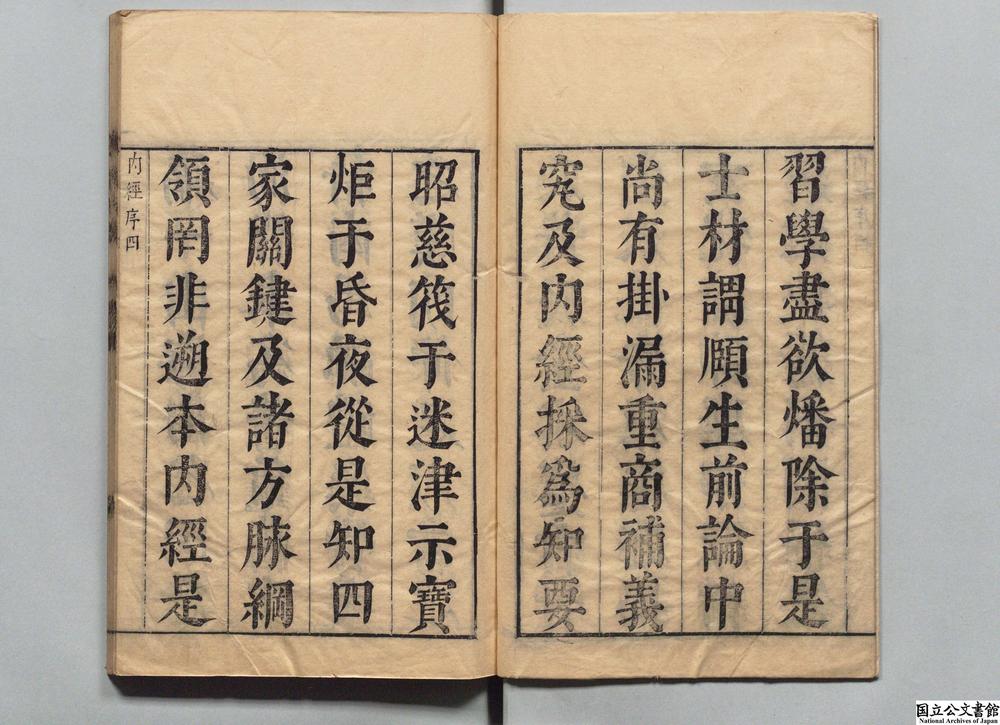 習學盡欲燔除于是
士材謂頋生前論中
尚有掛漏重商補義
究及内經採爲知要
昭慈筏于迷津示寶
炬于昏夜從是知四
家關鍵及諸方脉綱
領罔非遡本内經是
内經序四
国立公文書館
National Archives of Japan